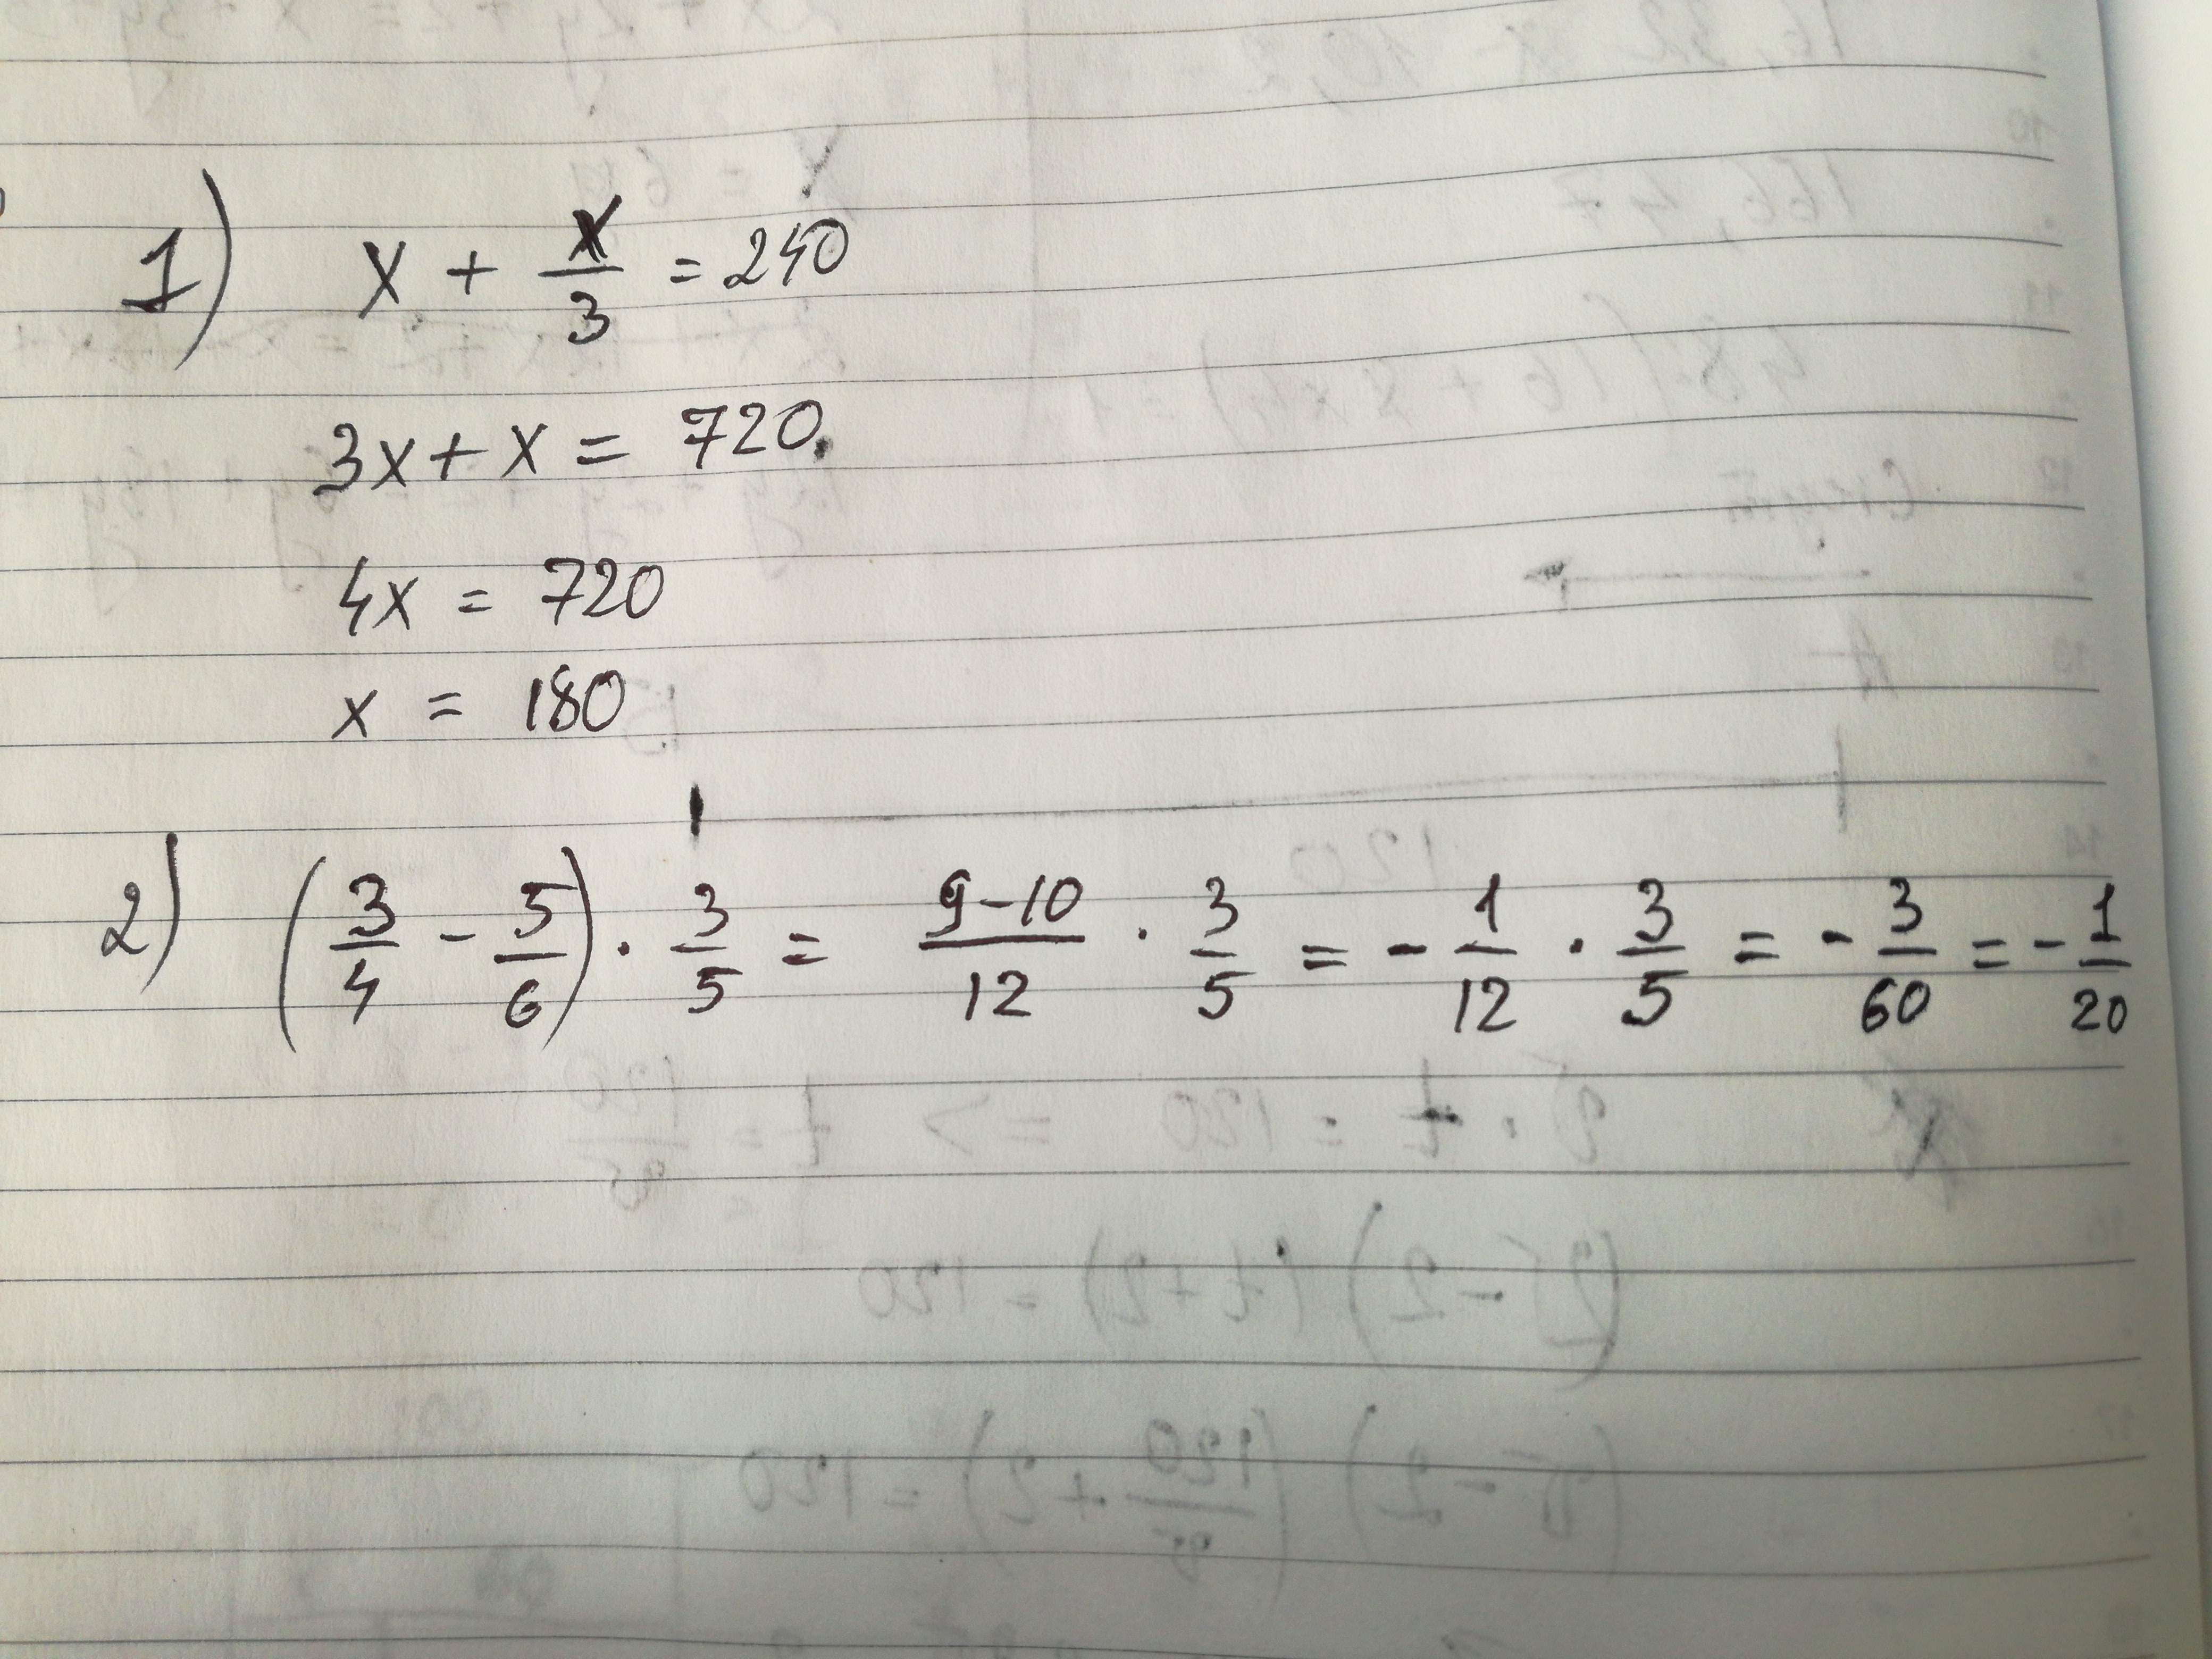 1) x + x/3 = 240
3x + x = 720.
4x = 720
x = 180
2) (3/4 - 5/6) · 3/5 = 9-10/12 · 3/5 = - 1/12 · 3/5 = - 3/60 = - 1/20